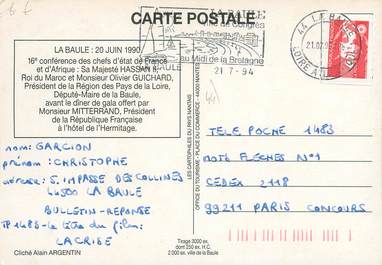 CARTE POSTALE
LA BAULE : 20 JUIN 1990
16e conférence des chefs d'état de France
et d'Afrique : Sa Majesté HASSAN II,
Roi du Maroc et Monsieur Olivier GUICHARD,
Président de la Région des Pays de la Loire,
Député-Maire de la Baule,
avant le dîner de gala offert par
Monsieur MITTERRAND, Président
de la République Française
à l'hôtel de l'Hermitage.
Congrès
au Midi de la Bretagne
21-7-94
44 LA BAULE
LOIRE ATL
nom: GARCION
prénom: CHRISTOPHE
adresse: 5. IMPASSE DES COLLINES
44500 LA BAULE
BULLETIN-REPONSE
TP 1483- le titre du film:
LA CRISE
Cliché Alain ARGENTIN
LES CARTOPHILES DU PAYS NANTAIS
OFFICE DU TOURISME
Tirage 3000 ex.
dont 250 ex. H.C.
2.000 ex. ville de la Baule
TELE POCHE 1483
MOTS FLECHES N°1
CEDEX 2118
99211 PARIS CONCOURS